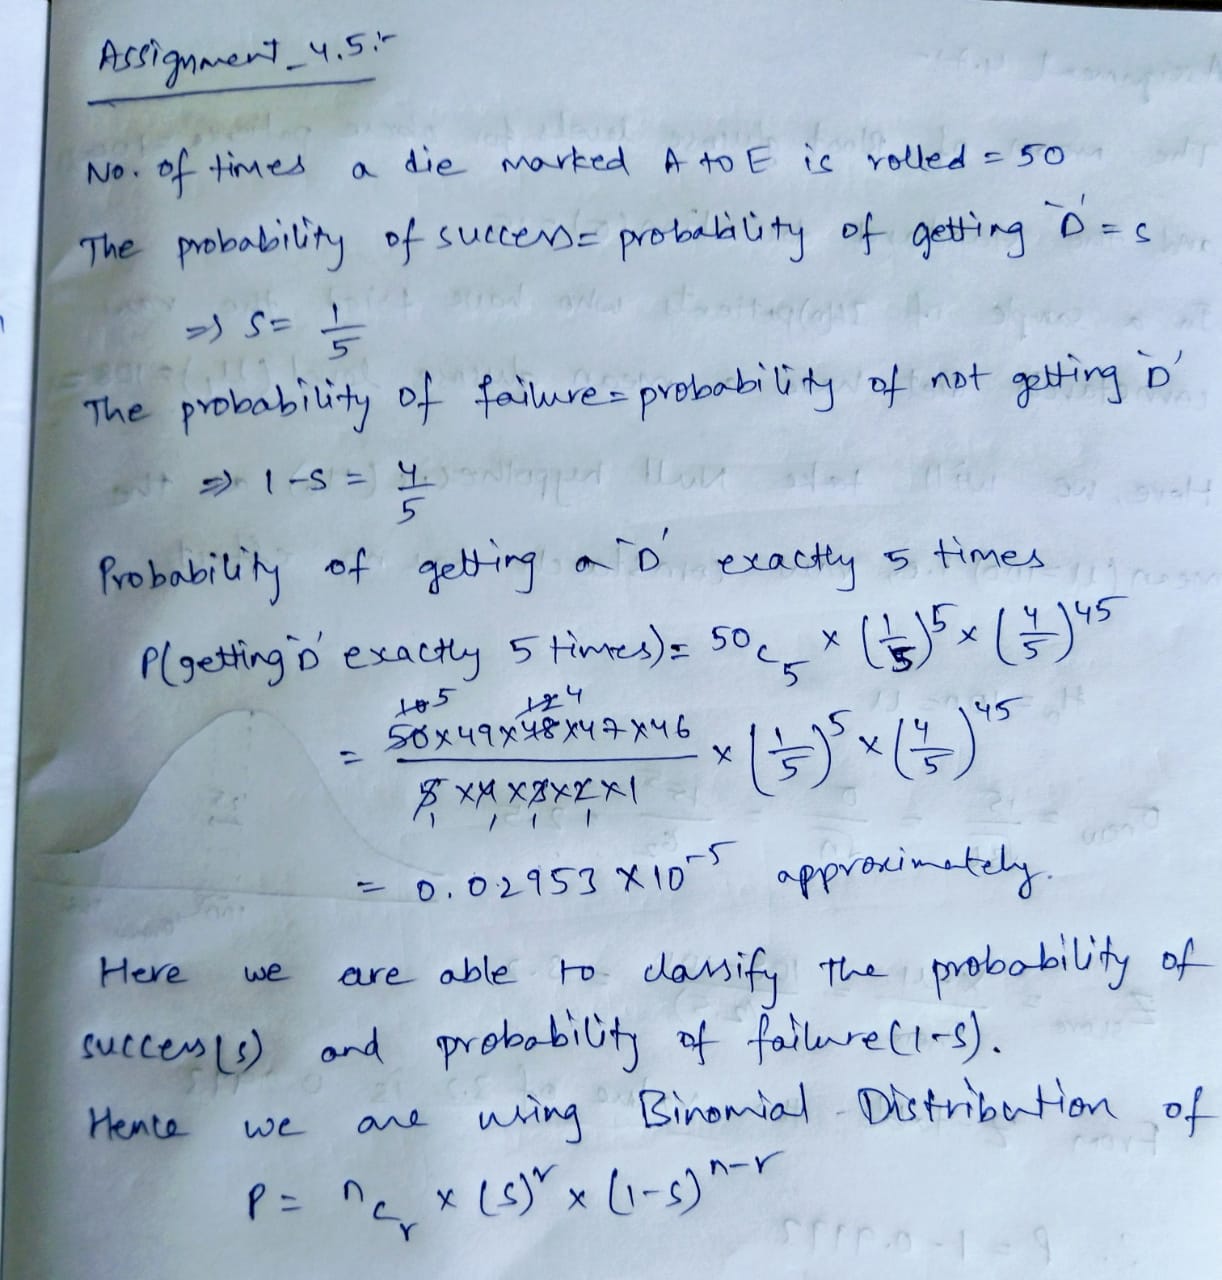 Assignment_4.5:-
No. of times a die marked A to E is rolled = 50
The probability of success = probability of getting `D' = s
=> s = 1/5
The probability of failure = probability of not getting `D'
=> 1-s = 4/5
Probability of getting a `D' exactly 5 times
P(getting `D' exactly 5 times) = 50c5 × (1/5)^5 × (4/5)^45
= (50×49×48×47×46)/(5×4×3×2×1) × (1/5)^5 × (4/5)^45
= 0.02953 × 10^-5 approximately.
Here we are able to classify the probability of
success(s) and probability of failure(1-s).
Hence we are using Binomial Distribution of
P = ncr × (s)^r × (1-s)^n-r